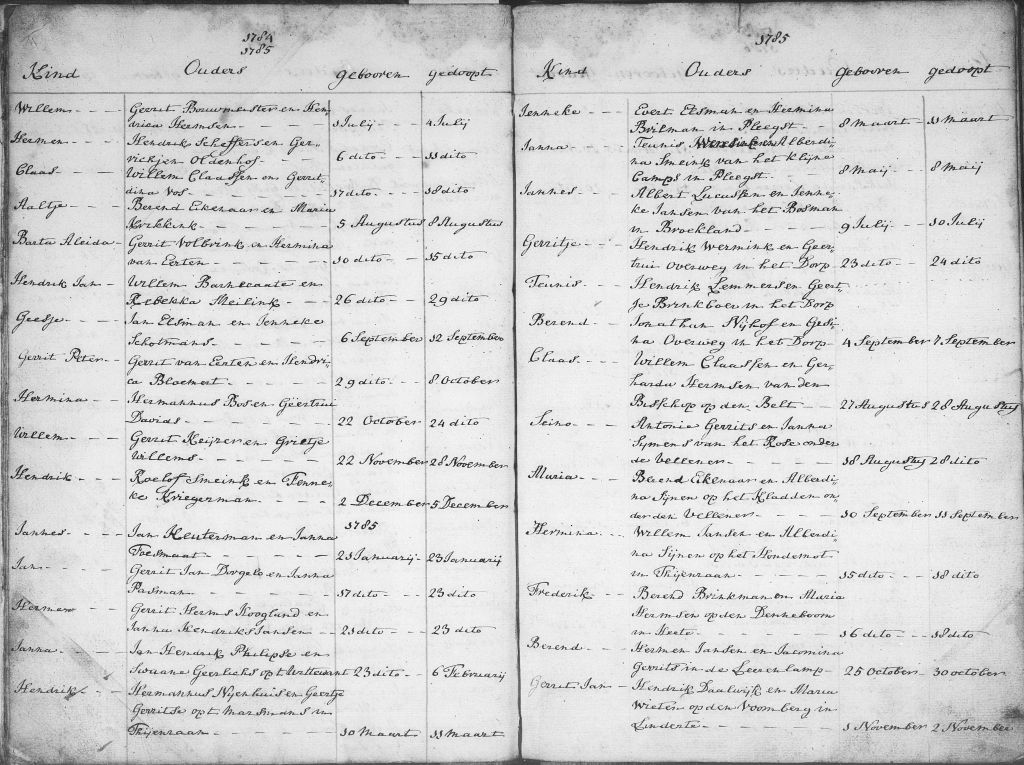 1784
1785
Kind Ouders gebooren gedoopt
Willem Gerrit Bouwmeester en Hen
drica Hermsen 1 Julij 4 Julij
Hermen Hendrik Scheffers en Ger
rickjen Oldenhof 6 dito 11 dito
Claas Willem Claassen en Gerrit
dina Vos 17 dito 18 dito
Aaltje Berend Eikenaar en Maria
Krikkink 5 Augustus 8 Augustus
Barta Aleida Gerrit Volbrink en Hermina
van Eerten 10 dito 15 dito
Hendrik Jan Willem en
Rebekka Meilink 26 dito 29 dito
Geesje Jan Elsman en Jenneke
Schotmans 6 September 12 September
Gerrit Peter Gerrit van Eerten en Hendri
ca Bloemert 29 dito 8 October
Hermina Hermannus Bos en Geertrui
Davids 22 October 24 dito
Willem Gerrit Keijzer en Grietje
Willems 22 November 28 November
Hendrik Roelof Smeink en Jenne
ke Kriegerman 2 December 5 December
1785
Jannes Jan Heuterman en Janna
Toesmaat 21 Januarij 23 Januarij
Jan Gerrit Jan Dorgelo en Janna
Pasman 17 dito 23 dito
Hermen Gerrit Herms Hoogland en
Janna Hendriks Jansen 21 dito 23 dito
Janna Jan Hendrik Philipse en
Swaane Geerlichs op 23 dito 6 Februarij
Hendrik Hermannus Nijenhuis en Geertje
Gerritse opt Marsmans in
Thijenraan 10 Maart 11 Maart
1785
Kind Ouders gebooren gedoopt
Jenneke Evert Elsman en Hermina
Brilman in Pleegst 8 Maart 11 Maart
Janna Teunis en Alberdi
na Smeink van het klijne
Camps in Pleegst 8 Maij 8 Maij
Jannes Albert Lucassen en Jenne
ke Jansen van het Bosman
in Broekland 9 Julij 10 Julij
Gerritje Hendrik Wermink en Geer
truii Overweg in het Dorp 23 dito 24 dito
Teunis Hendrik Lemmers en Geert
je Brinkboer in het Dorp
Berend Jonathan Nijhof en Gesi
na Overweg in het Dorp 4 September 7 September
Claas Willem Claassen en Ger
harda Hermsen van den
Bisschop op den Belt 27 Augustus 28 Augustus
Seino Antonie Gerrits en Janna
Symens van het Rose onder
de Vellener 18 Augusty 28 dito
Maria Berend Eikenaar en Alberdi
na Sijnen op het Kladden on
der den Vellener 10 September 11 September
Hermina Willem Jansen en Alberdi
na Sijnen op het Hondemot
in Thijenraan 15 dito 18 dito
Frederik Berend Brinkman en Maria
Hermsen op den Denneboom
in Heete 16 dito 18 dito
Berend Hermen Jansen en Jacomina
Gerrits in de Leerenlamp 25 October 30 october
Gerrit Jan Hendrik Daalwijk en Maria
Wieten op den Voornberg in
Linderte 1 November 2 November